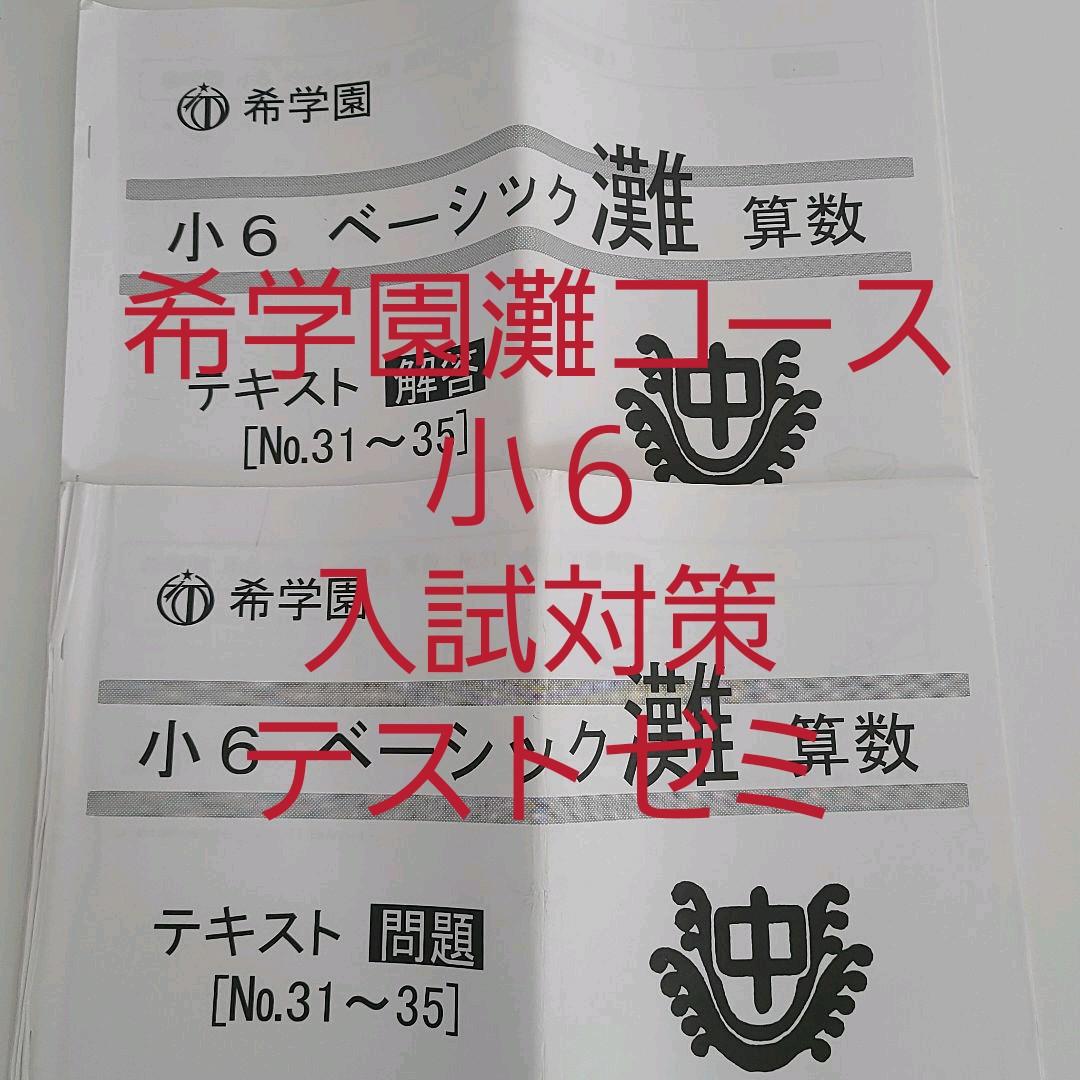 希学園
小6 ベーシック灘 算数
希学園灘コース
テキスト 解答
[No.31～35]
中
小6
希学園
入試対策
小6 ベーシック灘 算数
テストゼミ
テキスト 問題
[No.31～35]
中